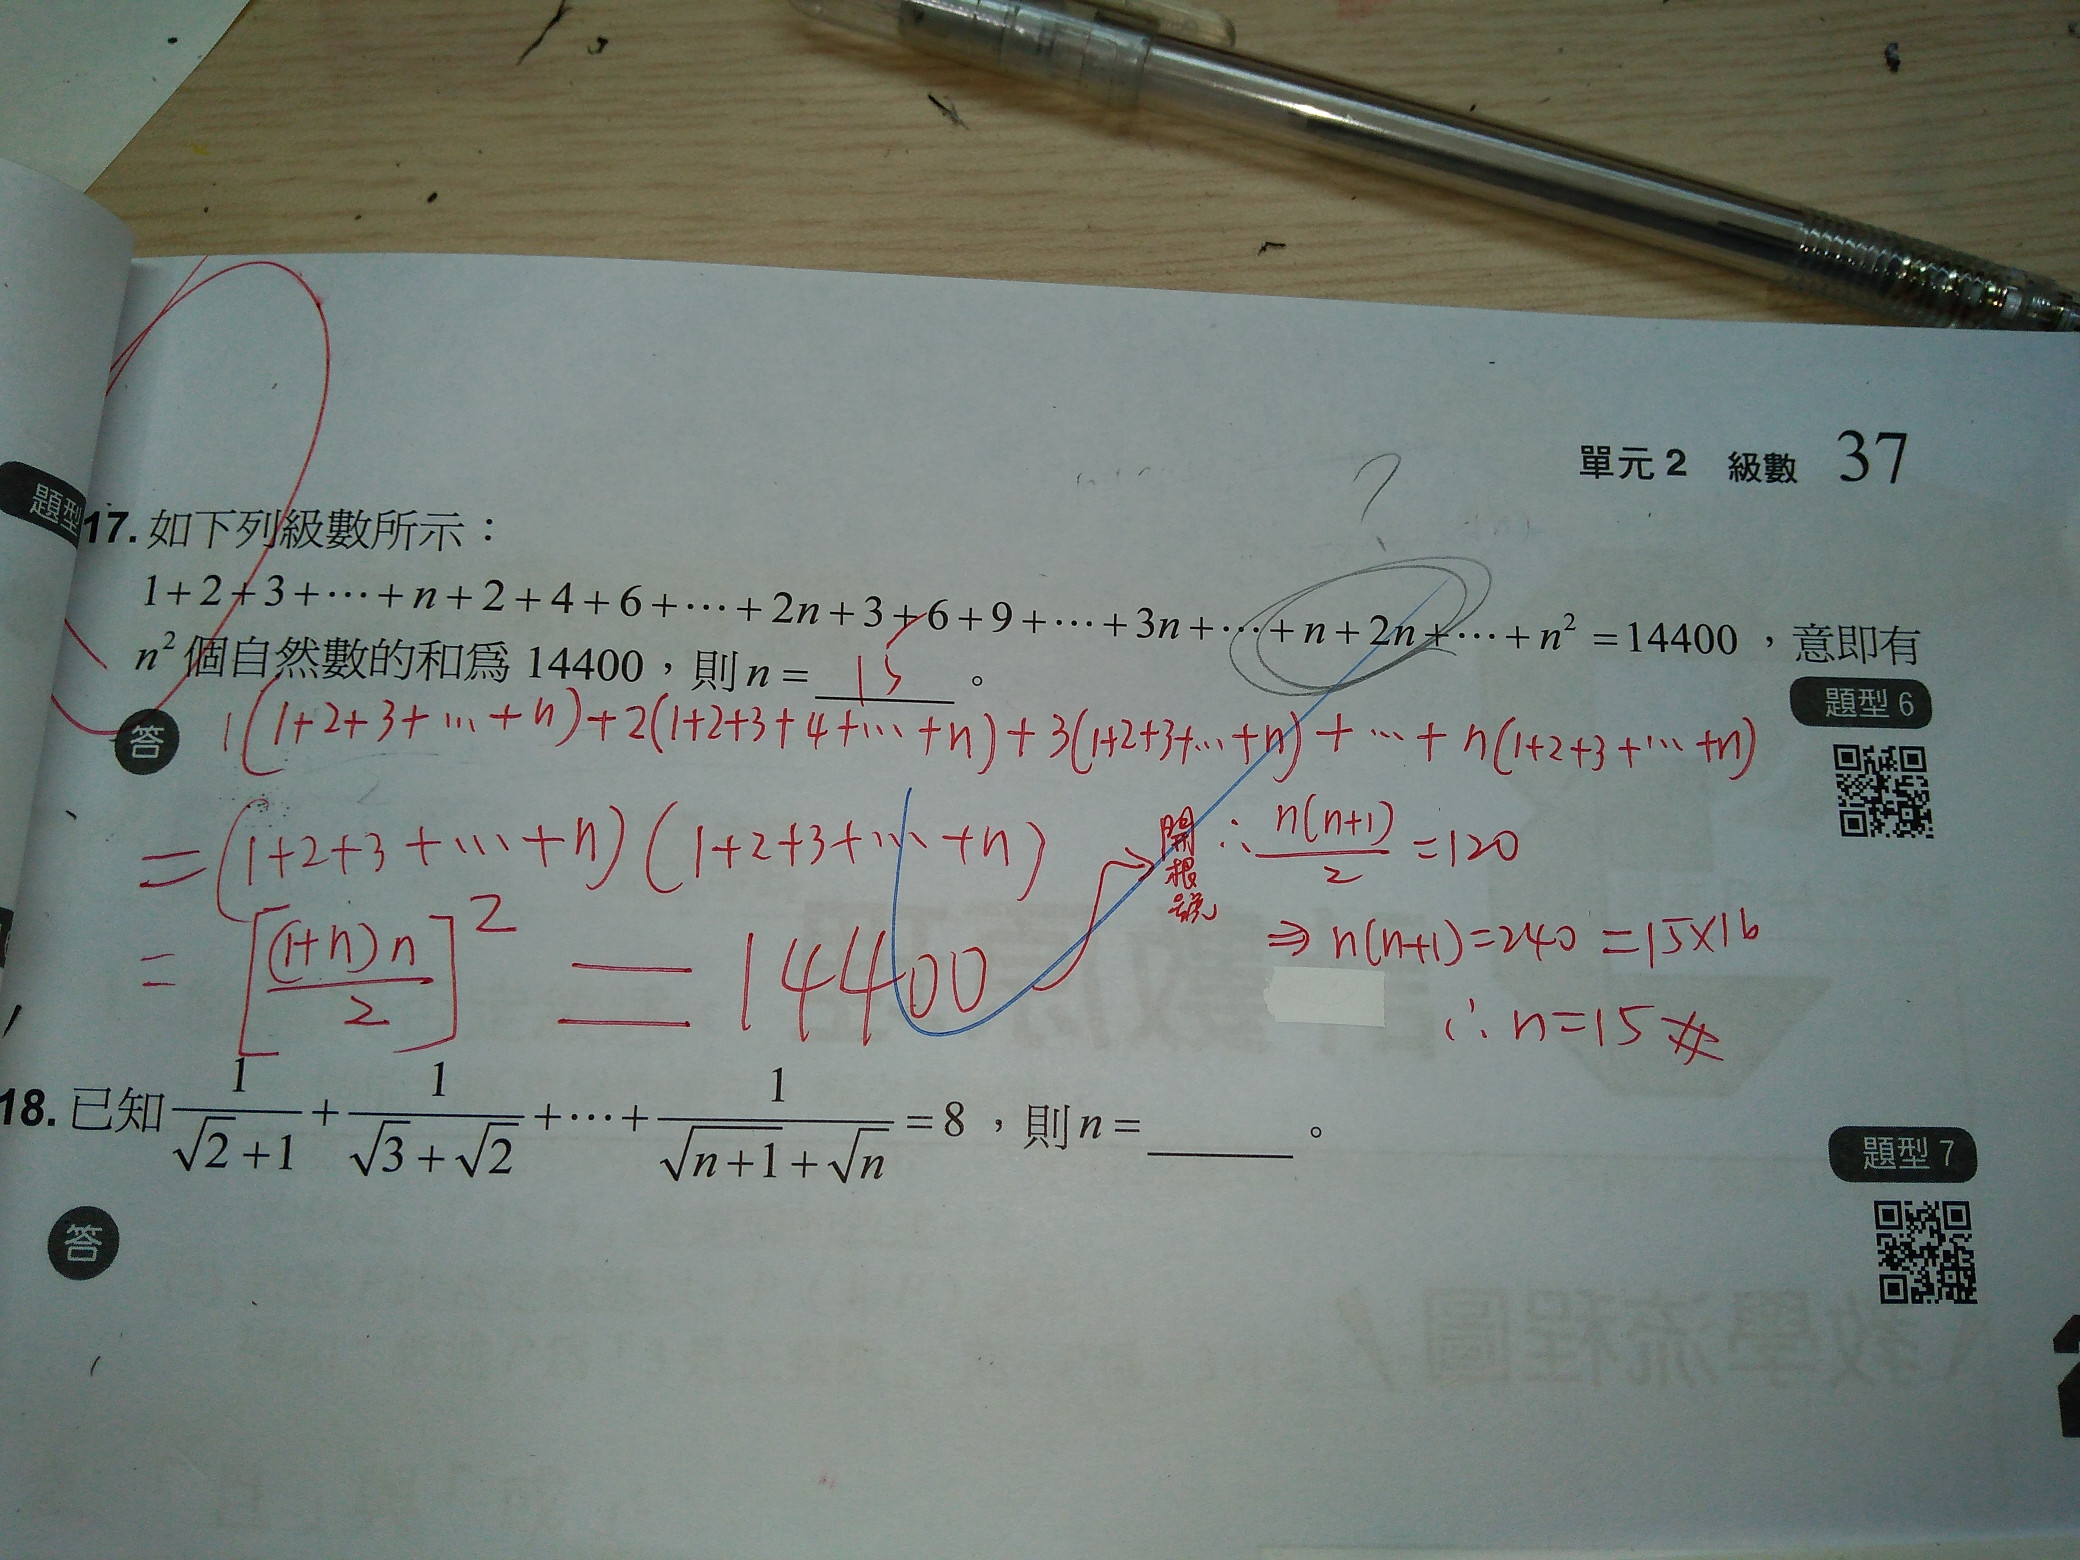 單元2 級數 37
題型
17. 如下列級數所示：
?
1+2+3+⋯+n+2+4+6+⋯+2n+3+6+9+⋯+3n+⋯+n+2n+⋯+n²=14400，意即有
n²個自然數的和為14400，則n=15。
題型6
答 1(1+2+3+⋯+n)+2(1+2+3+4+⋯+n)+3(1+2+3+⋯+n)+⋯+n(1+2+3+⋯+n)
=(1+2+3+⋯+n)(1+2+3+⋯+n)
=[(1+n)n/2]²=14400
開根號 ∴ n(n+1)/2=120
⇒n(n+1)=240=15×16
∴n=15#
18. 已知1/(√2+1)+1/(√3+√2)+⋯+1/(√(n+1)+√n)=8，則n=______。
題型7
答
教學流程圖